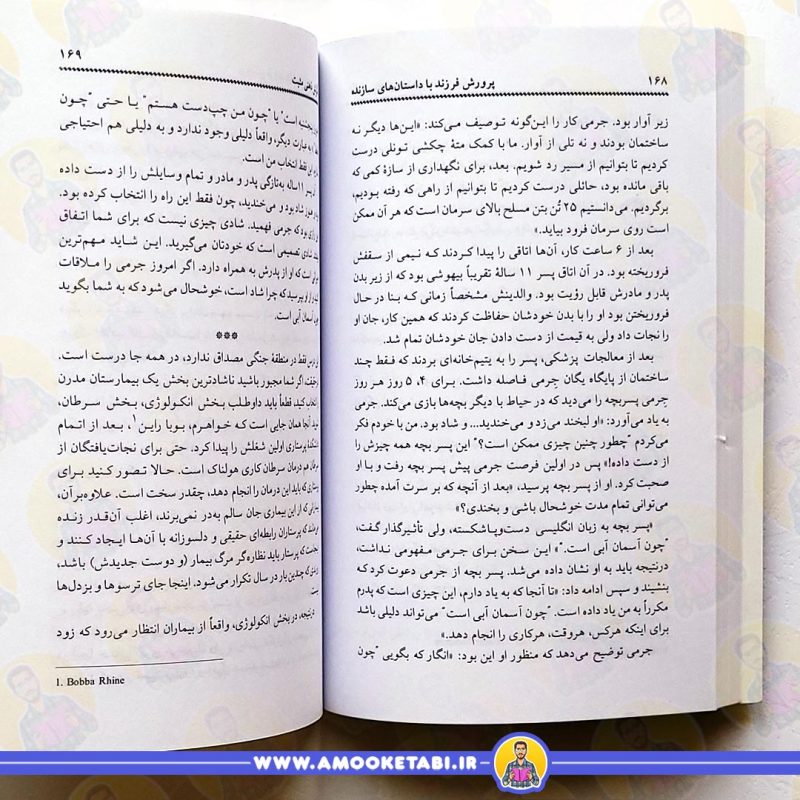 ۱۶۸ پرورش فرزند با داستان‌های سازنده
زیر آوار بود. جرمی کار را این‌گونه توصیف می‌کند: «این‌ها دیگر نه
ساختمان بودند و نه تلی از آوار. ما با کمک متهٔ چکشی تونلی درست
کردیم تا بتوانیم از مسیر رد شویم. بعد، برای نگهداری از سازهٔ کمی که
باقی مانده بود، حائلی درست کردیم تا بتوانیم از راهی که رفته بودیم،
برگردیم. می‌دانستیم ۲۵ تُن بتن مسلح بالای سرمان است که هر آن ممکن
است روی سرمان فرود بیاید.»
بعد از ۶ ساعت کار، آن‌ها اتاقی را پیدا کردند که نیمی از سقفش
فروریخته بود. در آن اتاق پسر ۱۱ سالهٔ تقریباً بیهوشی بود که از زیر بدن
پدر و مادرش قابل رؤیت بود. والدینش مشخصاً زمانی که بنا در حال
فروریختن بود او را با بدن خودشان حفاظت کردند که همین کار، جان او
را نجات داد ولی به قیمت از دست دادن جان خودشان تمام شد.
بعد از معالجات پزشکی، پسر را به یتیم‌خانه‌ای بردند که فقط چند
ساختمان از پایگاه یگان جِرمی فاصله داشت. برای ۴، ۵ روز هر روز
جرمی پسربچه را می‌دید که در حیاط با دیگر بچه‌ها بازی می‌کند. جرمی
به یاد می‌آورد: «او لبخند می‌زد و می‌خندید... و شاد بود. من با خودم فکر
می‌کردم "چطور چنین چیزی ممکن است؟" این پسر بچه همه چیزش را
از دست داده!» پس در اولین فرصت جرمی پیش پسر بچه رفت و با او
صحبت کرد. او از پسر بچه پرسید، «بعد از آنچه که بر سرت آمده چطور
می‌توانی تمام مدت خوشحال باشی و بخندی؟»
«پسر بچه به زبان انگلیسی دست‌وپاشکسته، ولی تأثیرگذار گفت،
"چون آسمان آبی است."» این سخن برای جرمی مفهومی نداشت،
درنتیجه باید به او نشان داده می‌شد. پسر بچه از جرمی دعوت کرد که
بنشیند و سپس ادامه داد: «تا آنجا که به یاد دارم، این چیزی است که پدرم
مکرراً به من یاد داده است. "چون آسمان آبی است" می‌تواند دلیلی باشد
برای اینکه هرکس، هروقت، هرکاری را انجام دهد.»
جرمی توضیح می‌دهد که منظور او این بود: «انگار که بگویی "چون
۱۶۹ ذهنی مثبت
پنجشنبه است" یا "چون من چپ‌دست هستم" یا حتی "چون
عبارت دیگر، واقعاً دلیلی وجود ندارد و به دلیلی هم احتیاجی
این فقط انتخاب من است.
پسر ۱۱ ساله به‌تازگی پدر و مادر و تمام وسایلش را از دست داده
هنوز شاد بود و می‌خندید، چون فقط این راه را انتخاب کرده بود.
بود که جرمی فهمید. شادی چیزی نیست که برای شما اتفاق
شادی تصمیمی است که خودتان می‌گیرید. این شاید مهم‌ترین
است که او از پدرش به همراه دارد. اگر امروز جرمی را ملاقات
از او بپرسید که چرا شاد است، خوشحال می‌شود که به شما بگوید
آسمان آبی است.
***
درس فقط در منطقهٔ جنگی مصداق ندارد، در همه جا درست است.
اگر شما مجبور باشید ناشادترین بخش یک بیمارستان مدرن
کنید، قطعاً باید داوطلب بخش انکولوژی، بخش سرطان،
آنجا همان جایی است که خواهرم، بوبا راین۱، بعد از اتمام
پرستاری اولین شغلش را پیدا کرد. حتی برای نجات‌یافتگان از
هم درمان سرطان کاری هولناک است. حالا تصور کنید برای
که باید این درمان را انجام دهد، چقدر سخت است. علاوه‌بر آن،
از این بیماری جان سالم به‌در نمی‌برند، اغلب آن‌قدر زنده
که پرستاران رابطه‌ای حقیقی و دلسوزانه با آن‌ها ایجاد کنند و
که پرستار باید نظاره‌گر مرگ بیمار (و دوست جدیدش) باشد،
که چندین بار در سال تکرار می‌شود. اینجا جای ترسوها و بزدل‌ها
درنتیجه، در بخش انکولوژی، واقعاً از بیماران انتظار می‌رود که زود
1. Bobba Rhine
WWW.AMOOKETABI.IR